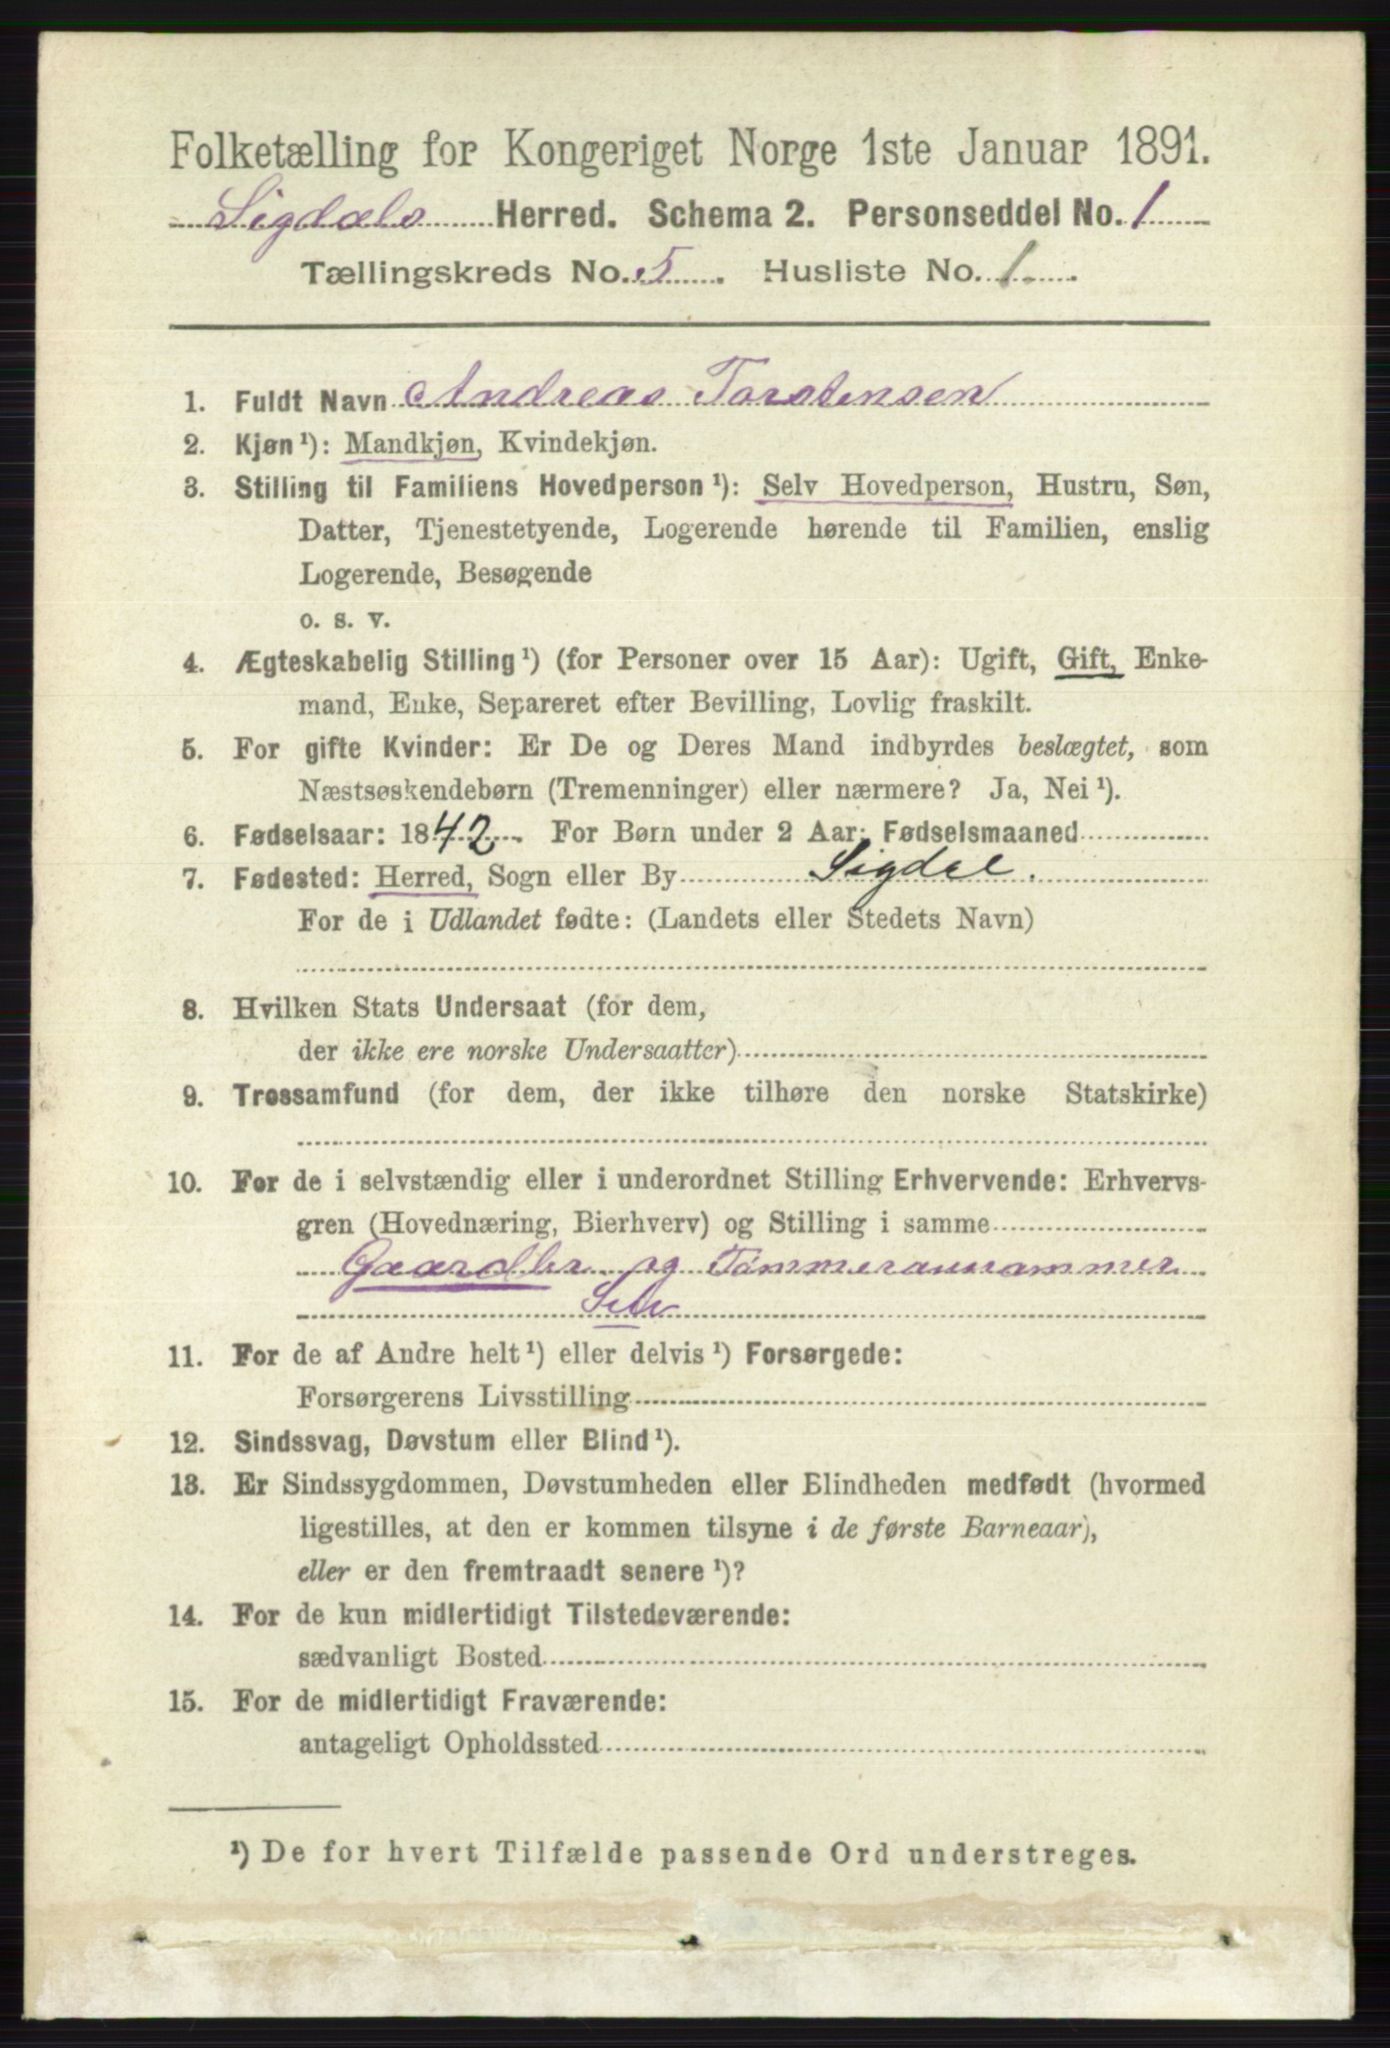 Folketælling for Kongeriget Norge 1ste Januar 1891.
Sigdals Herred. Schema 2. Personseddel No. 1
Tællingskreds No. 5. Husliste No. 1.
1. Fuldt Navn Andreas Torstensen
2. Kjøn¹): Mandkjøn, Kvindekjøn.
3. Stilling til Familiens Hovedperson¹): Selv Hovedperson, Hustru, Søn,
Datter, Tjenestetyende, Logerende hørende til Familien, enslig
Logerende, Besøgende
o. s. v.
4. Ægteskabelig Stilling¹) (for Personer over 15 Aar): Ugift, Gift, Enke-
mand, Enke, Separeret efter Bevilling, Lovlig fraskilt.
5. For gifte Kvinder: Er De og Deres Mand indbyrdes beslægtet, som
Næstsøskendebørn (Tremenninger) eller nærmere? Ja, Nei¹).
6. Fødselsaar: 1842. For Børn under 2 Aar: Fødselsmaaned
7. Fødested: Herred, Sogn eller By Sigdal.
For de i Udlandet fødte: (Landets eller Stedets Navn)
8. Hvilken Stats Undersaat (for dem,
der ikke ere norske Undersaatter)
9. Trossamfund (for dem, der ikke tilhøre den norske Statskirke)
10. For de i selvstændig eller i underordnet Stilling Erhvervende: Erhvervs-
gren (Hovednæring, Bierhverv) og Stilling i samme
Gaardbr. og
11. For de af Andre helt¹) eller delvis¹) Forsørgede:
Forsørgerens Livsstilling
12. Sindssvag, Døvstum eller Blind¹).
13. Er Sindssygdommen, Døvstumheden eller Blindheden medfødt (hvormed
ligestilles, at den er kommen tilsyne i de første Barneaar),
eller er den fremtraadt senere¹)?
14. For de kun midlertidigt Tilstedeværende:
sædvanligt Bosted
15. For de midlertidigt Fraværende:
antageligt Opholdssted
¹) De for hvert Tilfælde passende Ord understreges.